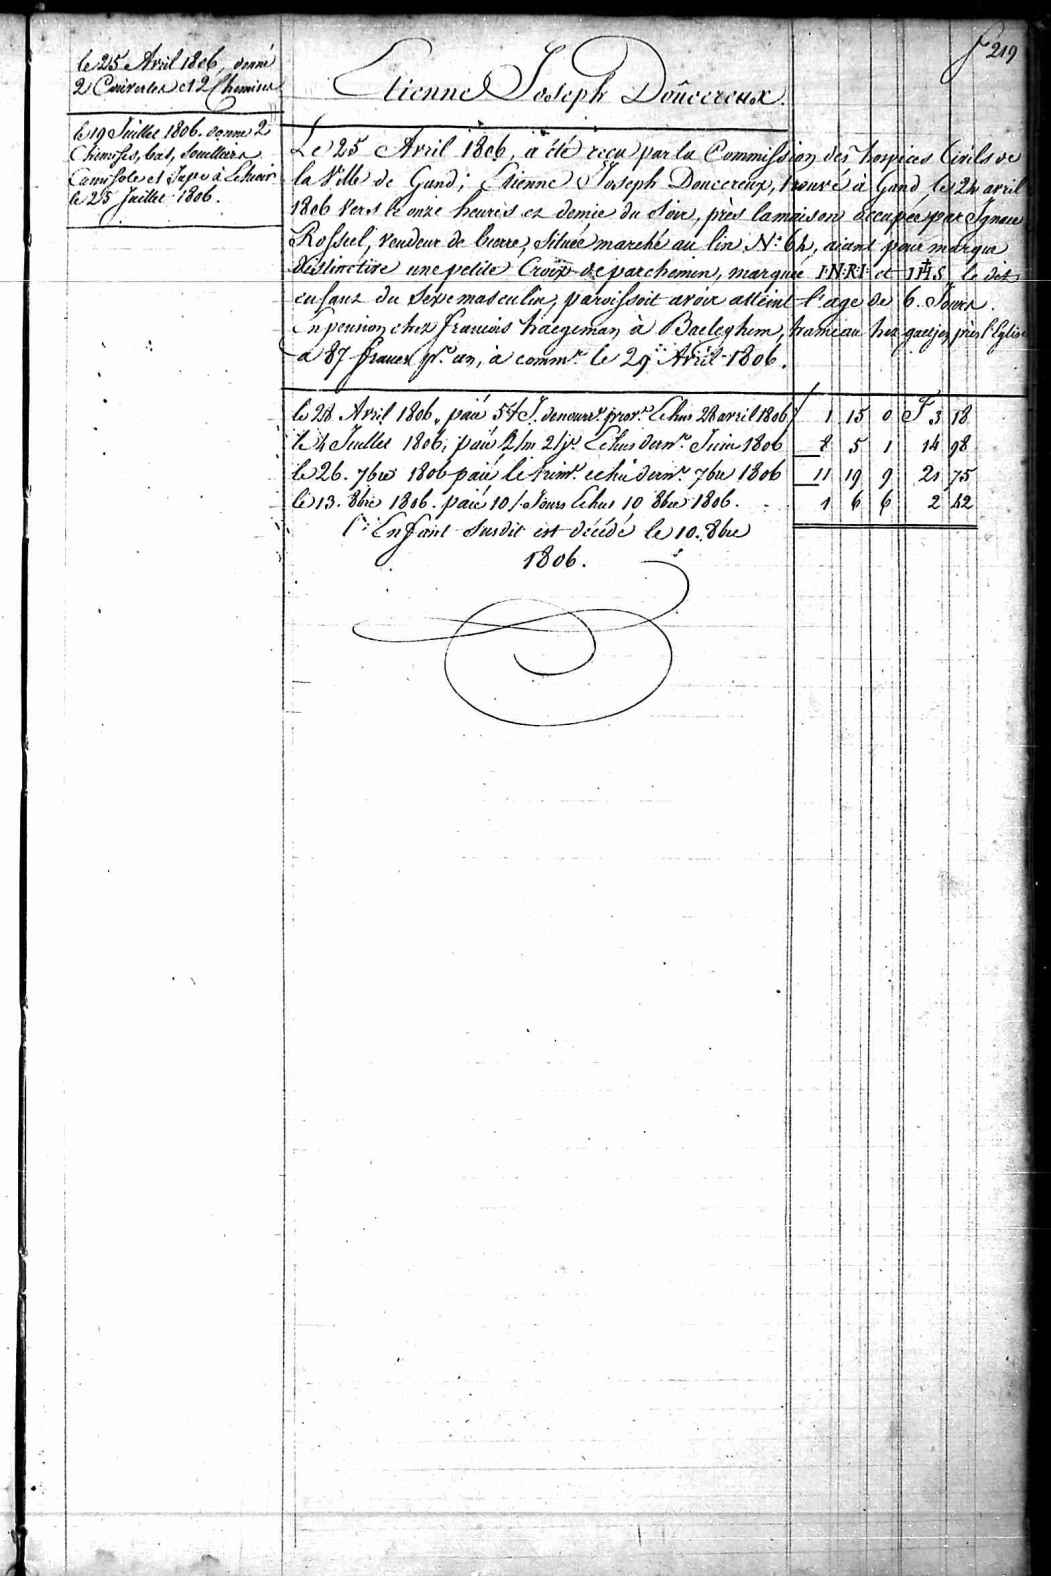 f 219
le 25 Avril 1806, donné
2 Couvertes et 2 Chemises
le 19 Juillet 1806. donné 2
Chemises, bas, Souilliers
Camisole et Jupe à Echoir
le 25 Juillet 1806.
Etienne Joseph Doucereux.
Le 25 Avril 1806, a été reçu par la Commission des hospices Civils de
la Ville de Gand; Etienne Joseph Doucereux, trouvé à Gand le 24 avril
1806 vers le onze heures et demie du Soir, près la maison occupée par Ignace
Rosseel, vendeur de bierre, située marché au lin Nº 64, aiant pour marque
distinctive une petite Croix de parchemin, marquée INRI et IHS, le dit
enfant du Sexe masculin, paroissoit avoir atteint l'age de 6. Jours.
En pension chez francois haegeman à Baeleghem, hameau het gaetje, près l'Eglise
a 87 francs pr. an, à comm.r le 29 Avril 1806.
le 28 Avril 1806, paié 5 J. de nourr.e prov.re Echus 28 avril 1806 1 15 0 F 3 18
le 4 Juillet 1806, paié 2/m 2/jrs Echus dern.r Juin 1806 8 5 1 14 98
le 26. 7bre 1806 paié le trim.e echu dern.r 7bre 1806 11 19 9 21 75
le 13. 8bre 1806. paié 10/Jours Echus 10 8bre 1806. 1 6 6 2 42
l'Enfant Susdit est décédé le 10. 8bre
1806.